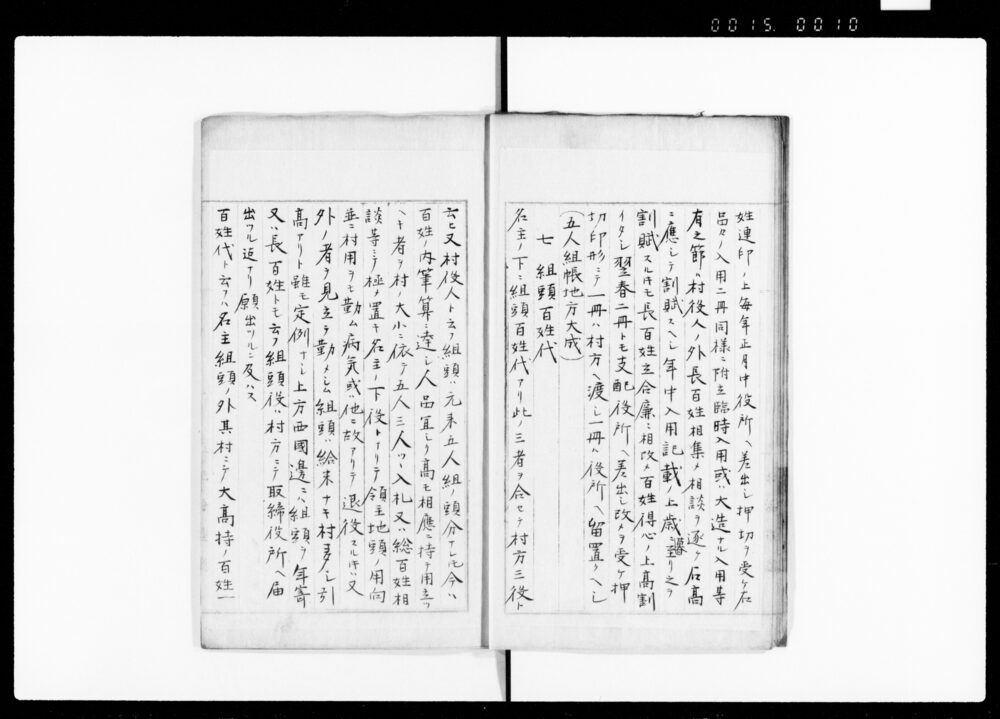 0015. 0010
姓連印ノ上毎年正月中役所ヘ差出シ押切ヲ受ケ右
品々ノ入用二冊同様ニ附立臨時入用或ハ大造ナル入用等
有之節ハ村役人ノ外長百姓相集メ相談ヲ逐ケ石高
ニ應シテ割賦スヘシ年中入用記載ノ上歳暮ニ至リ之ヲ
割賦スルトキモ長百姓立合廉ニ相改メ百姓得心ノ上高割
イタシ翌春二冊トモ支配役所ヘ差出シ改メヲ受ケ押
切印形ニテ一冊ハ村方ヘ渡シ一冊ハ役所ヘ留置クヘシ
（五人組帳地方大成）
七 組頭百姓代
名主ノ下ニ組頭百姓代アリ此ノ三者ヲ合セテ村方三役ト
云ヒ又村役人ト云フ組頭ハ元来五人組ノ頭分ナレトモ今ハ
百姓ノ内筆算ニ達シ人品宜シク高モ相應ニ持チ用立ツ
ヘキ者ヲ村ノ大小ニ依テ五人三人ツヽ入札又ハ総百姓相
談等ニテ極メ置キ名主ノ下役トナリテ領主地頭ノ用向
並ニ村用ヲモ勤ム病気或ハ他ニ故アリテ退役スルトキハ又
外ノ者ヲ見立テ勤メシム組頭ハ給米ナキ村多シ引
高アリト雖モ定例ナシ上方西國邊ニハ組頭ヲ年寄
又ハ長百姓トモ云フ組頭役ハ村方ニテ取締役所ヘ届
出ツル迄ナリ願出ツルニ及ハス
百姓代ト云フハ名主組頭ノ外其村ニテ大高持ノ百姓一